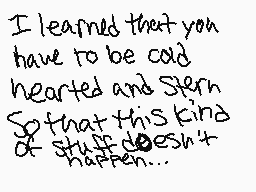 I learned that you
have to be cold
hearted and stern
So that this kind
of stuff doesn't
happen...